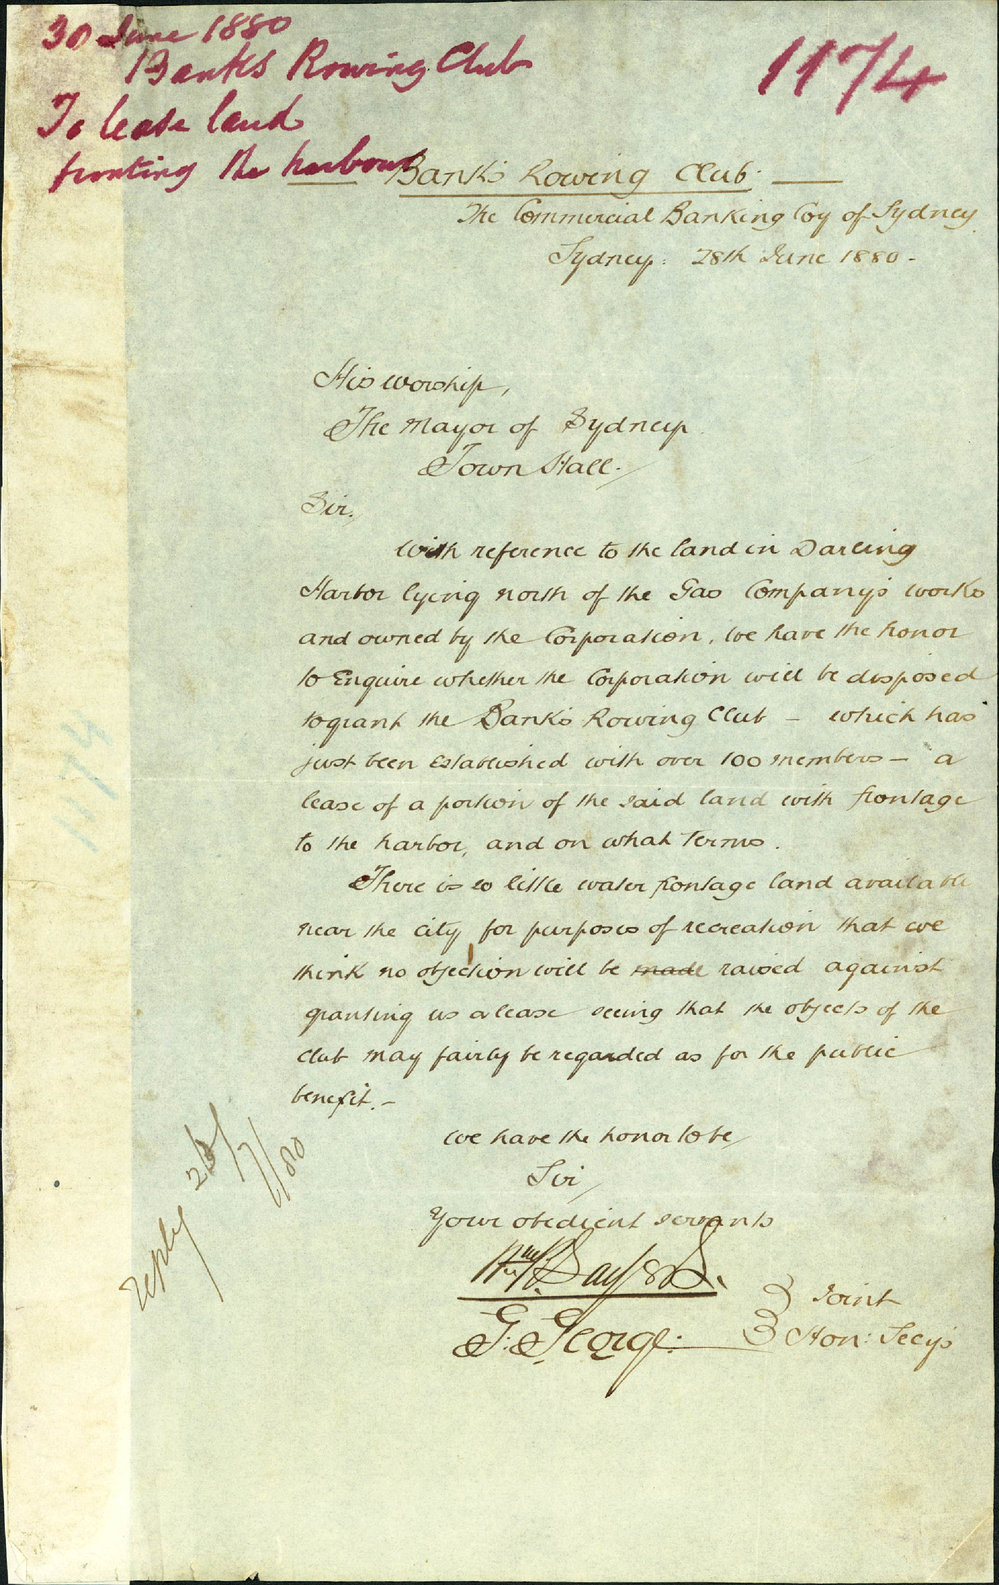 30 June 1880
Banks Rowing Club
To lease land
fronting the harbour
1174
Banks Rowing Club.
The Commercial Banking Coy of Sydney.
Sydney: 28th June 1880.
His worship,
The Mayor of Sydney
Town Hall.
Sir,
With reference to the land in Darling
Harbor lying north of the Gas Company's works
and owned by the Corporation, we have the honor
to Enquire whether the Corporation will be disposed
to grant the Banks Rowing Club — which has
just been Established with over 100 members — a
lease of a portion of the said land with frontage
to the harbor, and on what terms.
There is so little water frontage land available
near the city for purposes of recreation that we
think no objection will be made raised against
granting us a lease seeing that the objects of the
club may fairly be regarded as for the public
benefit. —
We have the honor to be,
Sir,
Your obedient servants
G. George.
Joint
Hon: Secys
reply 7/80
1174